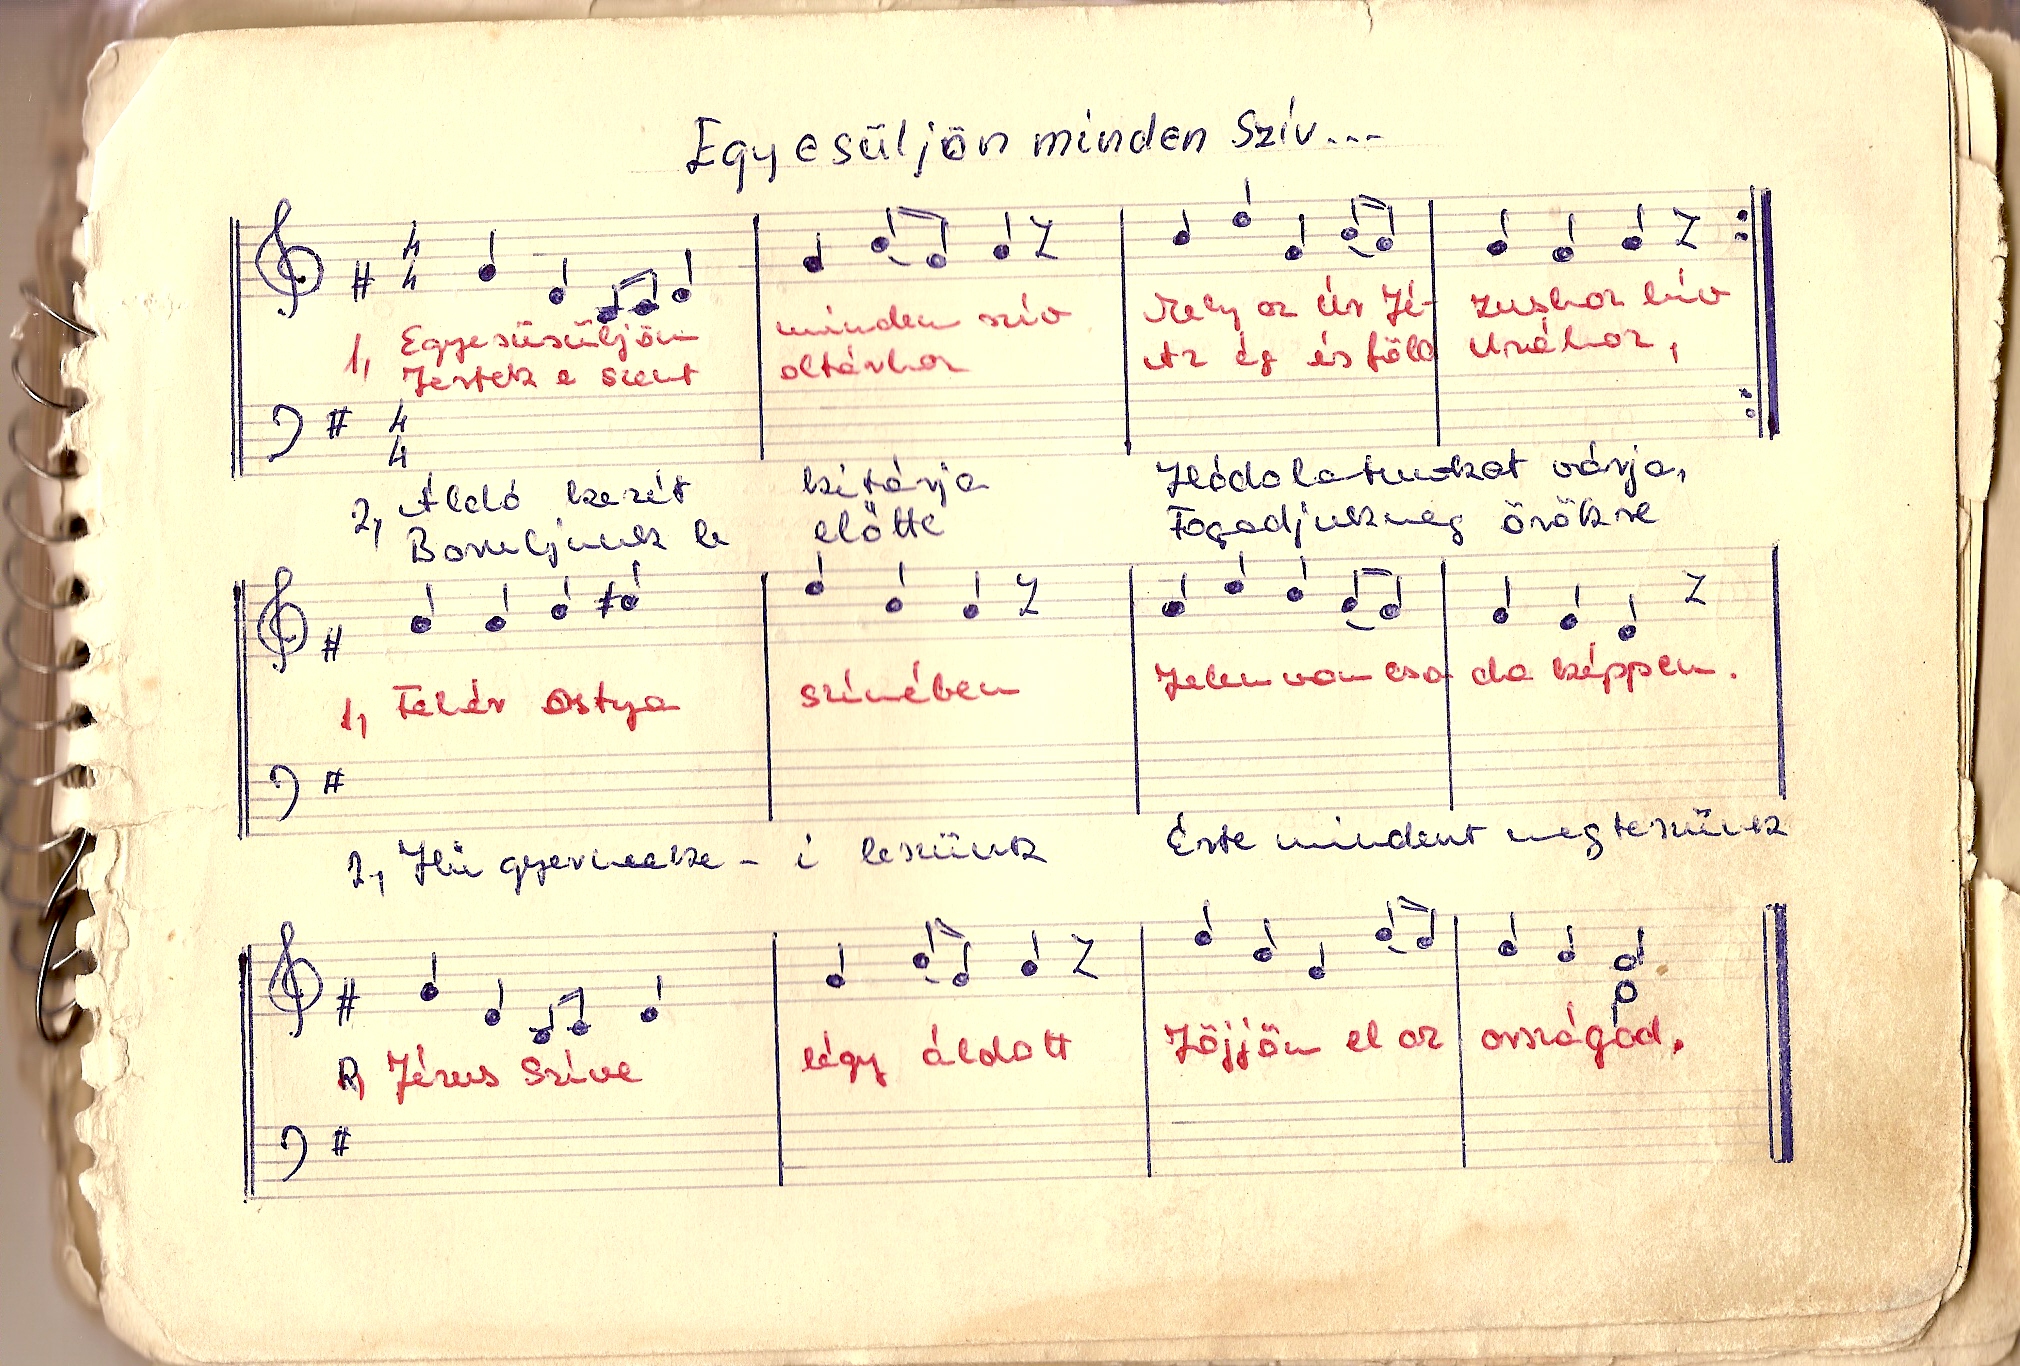 Egyesüljön minden Szív...
4
4
1, Egyesüsüljön minden szív Mely az Úr Jé- zushoz hív
Jertek a szent oltárhoz Az ég és föld Urához,
4
4
2, Áldó kezét kitárja Hódolatunkat várja,
Boruljunk le előtte Fogadjukmeg örökre
1, Fehér Ostya színében Jelen van cso da képpen.
2, Hű gyermeke - i leszünk Érte mindent megteszünk
R, Jézus Szíve légy áldott Jöjjön el az országod.